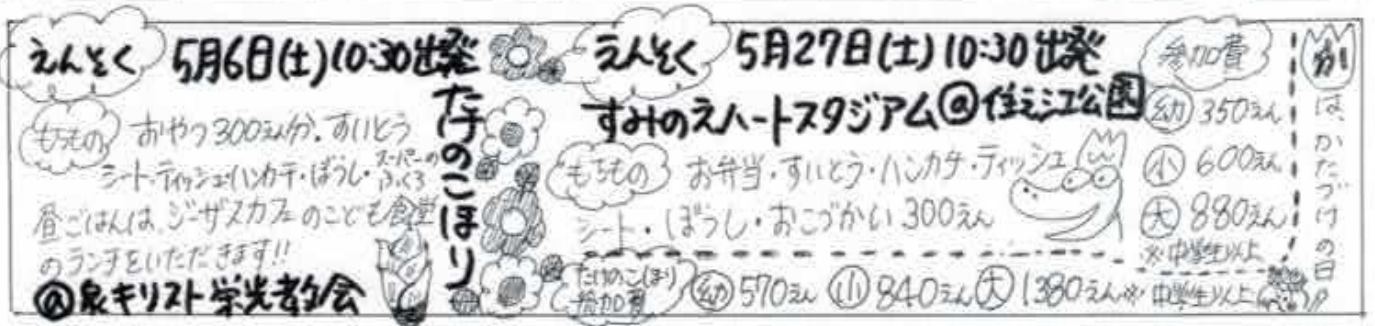 えんそく 5月6日(土)10:30出発
たけのこほり
もちもの おやつ300えん分・すいとう
シート・ティッシュ・ハンカチ・ぼうし・スーパーのふくろ
昼ごはんは、ジーザスカフェのこども食堂
のランチをいただきます!!
@泉キリスト栄光教会
えんそく 5月27日(土)10:30出発
すみのえハートスタジアム@住之江公園
もちもの お弁当・すいとう・ハンカチ・ティッシュ
シート・ぼうし・おこづかい300えん
参加費
幼 350えん
小 600えん
大 880えん
※中学生以上
たけのこほり
参加費 幼570えん 小840えん 大1380えん※中学生以上
は、かたづけの日